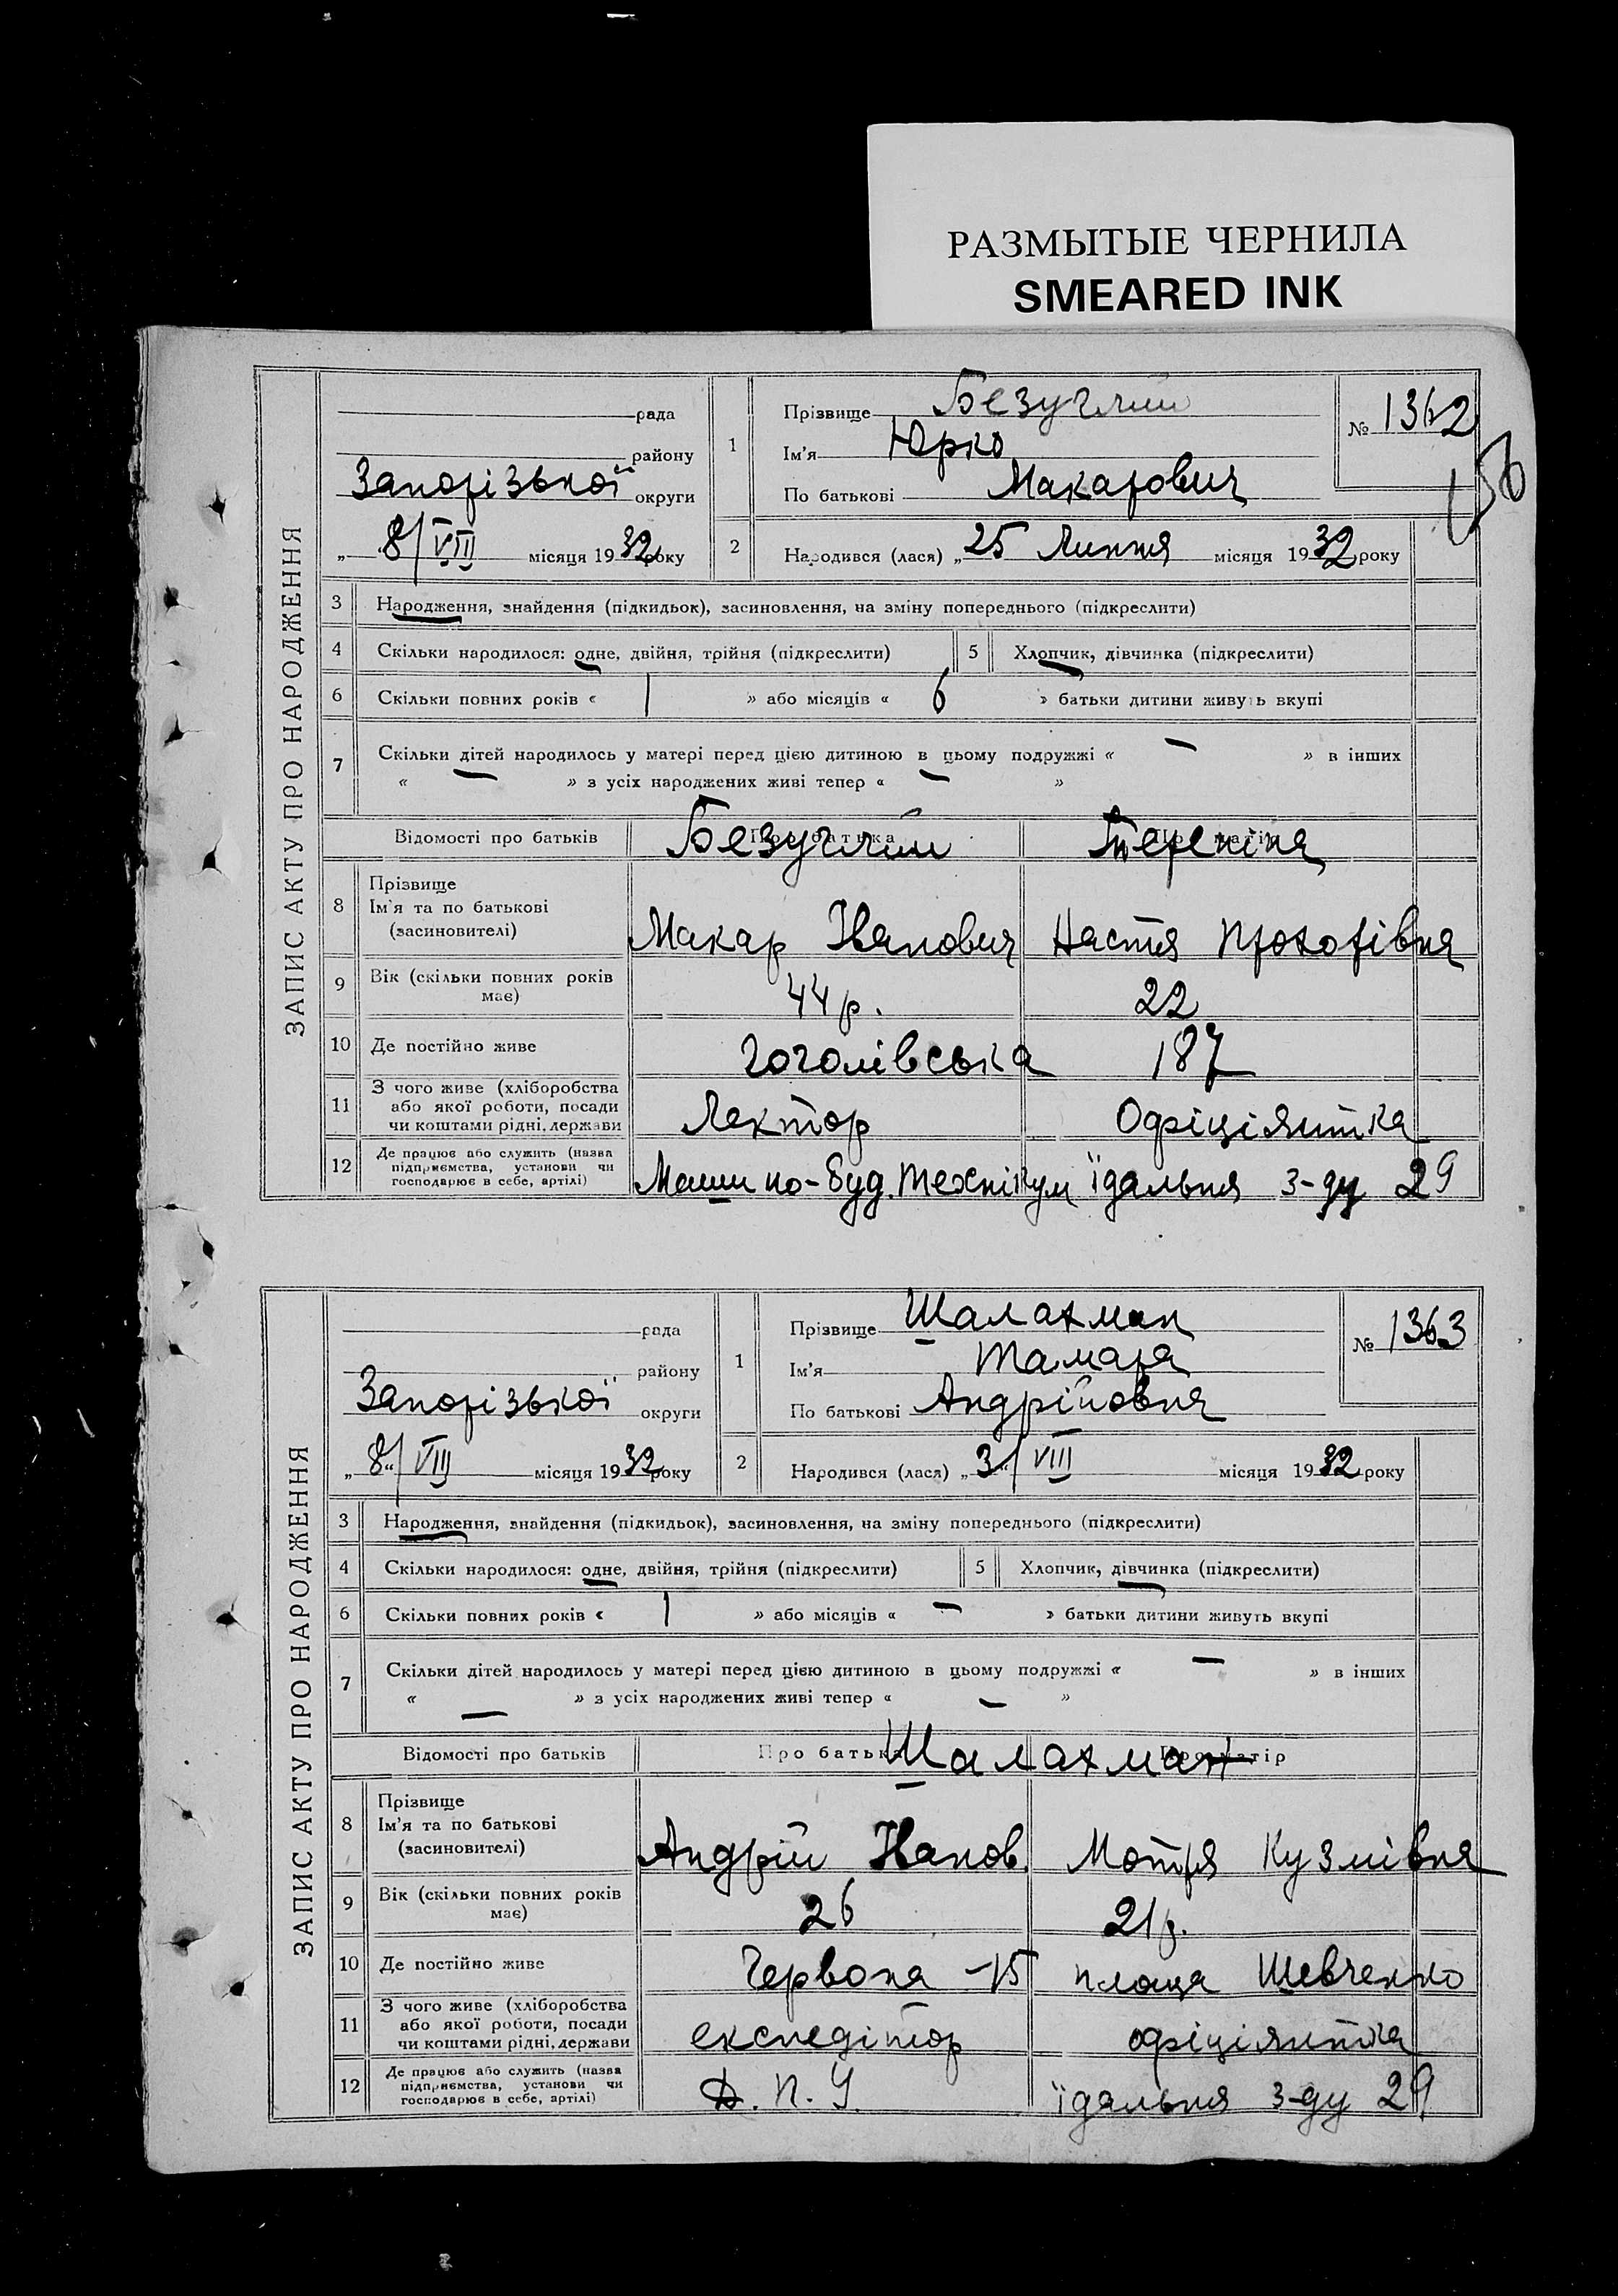 РАЗМЫТЫЕ ЧЕРНИЛА
SMEARED INK
ЗАПИС АКТУ ПРО НАРОДЖЕННЯ
рада
району
Запорізької округи
„ 8/VIII місяця 1932 року
1 Прізвище Безуглий
Ім'я Юрко
По батькові Макарович
№ 1362
2 Народився (лася) „ 25 Липня місяця 1932 року
3 Народження, знайдення (підкидьок), засиновлення, на зміну попереднього (підкреслити)
4 Скільки народилося: одне, двійня, трійня (підкреслити) 5 Хлопчик, дівчинка (підкреслити)
6 Скільки повних років « 1 » або місяців « 6 » батьки дитини живуть вкупі
7 Скільки дітей народилось у матері перед цією дитиною в цьому подружжі « — » в інших
« — » з усіх народжених живі тепер « — »
Відомості про батьків Про батька Безуглий Про матір
8 Прізвище
Ім'я та по батькові
(засиновителі) Макар Іванович Настя Прохорівна
9 Вік (скільки повних років має) 44 р. 22
10 Де постійно живе Гоголівська 187
11 З чого живе (хліборобства
або якої роботи, посади
чи коштами рідні, держави Лектор Офіціянтка
12 Де працює або служить (назва
підприємства, установи чи
господарює в себе, артілі) Машино-буд. Технікум їдальня з-ду 29
ЗАПИС АКТУ ПРО НАРОДЖЕННЯ
рада
району
Запорізької округи
„ 8“/VIII місяця 1932 року
1 Прізвище Шалахман
Ім'я Тамара
По батькові Андріївна
№ 1363
2 Народився (лася) „ 3“/VIII місяця 1932 року
3 Народження, знайдення (підкидьок), засиновлення, на зміну попереднього (підкреслити)
4 Скільки народилося: одне, двійня, трійня (підкреслити) 5 Хлопчик, дівчинка (підкреслити)
6 Скільки повних років « 1 » або місяців « — » батьки дитини живуть вкупі
7 Скільки дітей народилось у матері перед цією дитиною в цьому подружжі « — » в інших
« — » з усіх народжених живі тепер « — »
Відомості про батьків Про батька Шалахман Про матір
8 Прізвище
Ім'я та по батькові
(засиновителі) Андрій Іванов. Мотря Кузмівна
9 Вік (скільки повних років має) 26 21 р.
10 Де постійно живе Червона -15 площа Шевченко
11 З чого живе (хліборобства
або якої роботи, посади
чи коштами рідні, держави експедітор офіціянтка
12 Де працює або служить (назва
підприємства, установи чи
господарює в себе, артілі) Д.П.У. їдальня з-ду 29